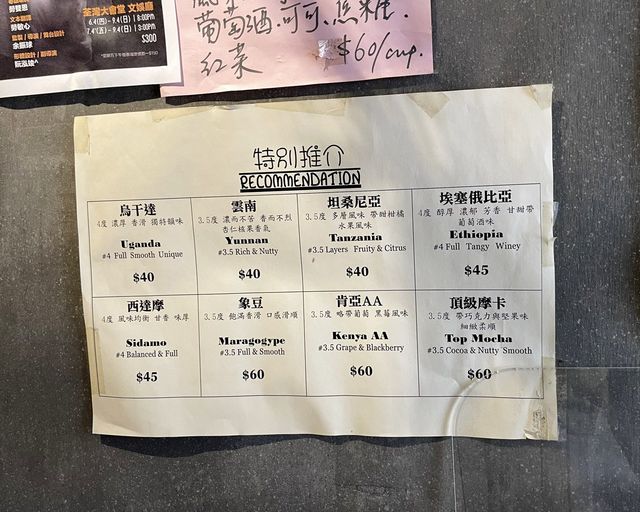 勞敏心
余振球
阮泓竣^
荃灣大會堂 文娛廳
6.4(四) - 9.4(日) | 8:00PM
7.4(五) - 9.4(日) | 3:00PM
$300
葡萄酒.可可.焦糖.
紅菜
$60/cup.
特別推介
RECOMMENDATION
烏干達
4度 濃厚 香滑 獨特韻味
Uganda
#4 Full Smooth Unique
$40
雲南
3.5度 濃而不苦 香而不烈
杏仁核果香氣
Yunnan
#3.5 Rich & Nutty
$40
坦桑尼亞
3.5度 多層風味 帶甜柑橘
水果風味
Tanzania
#3.5 Layers Fruity & Citrus
$40
埃塞俄比亞
4度 醇厚 濃郁 芳香 甘甜帶
葡萄酒味
Ethiopia
#4 Full Tangy Winey
$45
西達摩
4度 風味均衡 甘香 味厚
Sidamo
#4 Balanced & Full
$45
象豆
3.5度 飽滿香滑 口感滑順
Maragogype
#3.5 Full & Smooth
$60
肯亞AA
3.5度 略帶葡萄 黑莓風味
Kenya AA
#3.5 Grape & Blackberry
$60
頂級摩卡
3.5度 帶巧克力與堅果味
細緻柔順
Top Mocha
#3.5 Cocoa & Nutty Smooth
$60